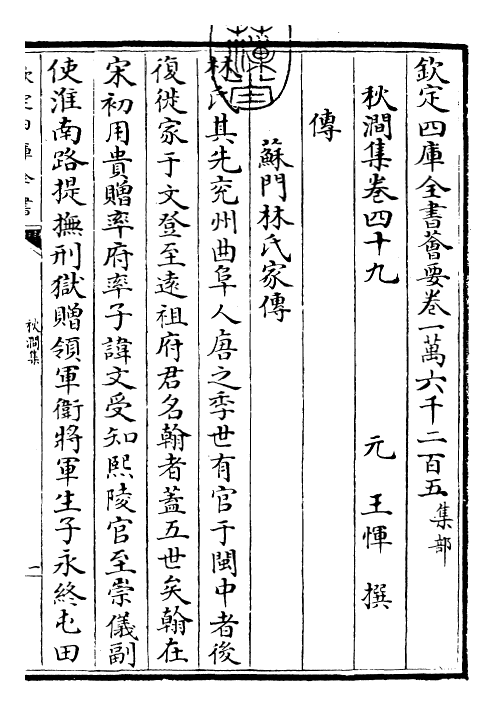 欽定四庫全書薈要卷一萬六千二百五 集部
秋澗集卷四十九 元 王惲 撰
傳
蘇門林氏家傳
林氏其先兖州曲阜人唐之季世有官于閩中者後
復徙家于文登至遠祖府君名翰者蓋五世矣翰在
宋初用貴贈率府率子諱文受知熙陵官至崇儀副
使淮南路提撫刑獄贈領軍衛將軍生子永終屯田
欽定四庫全書
秋澗集
一